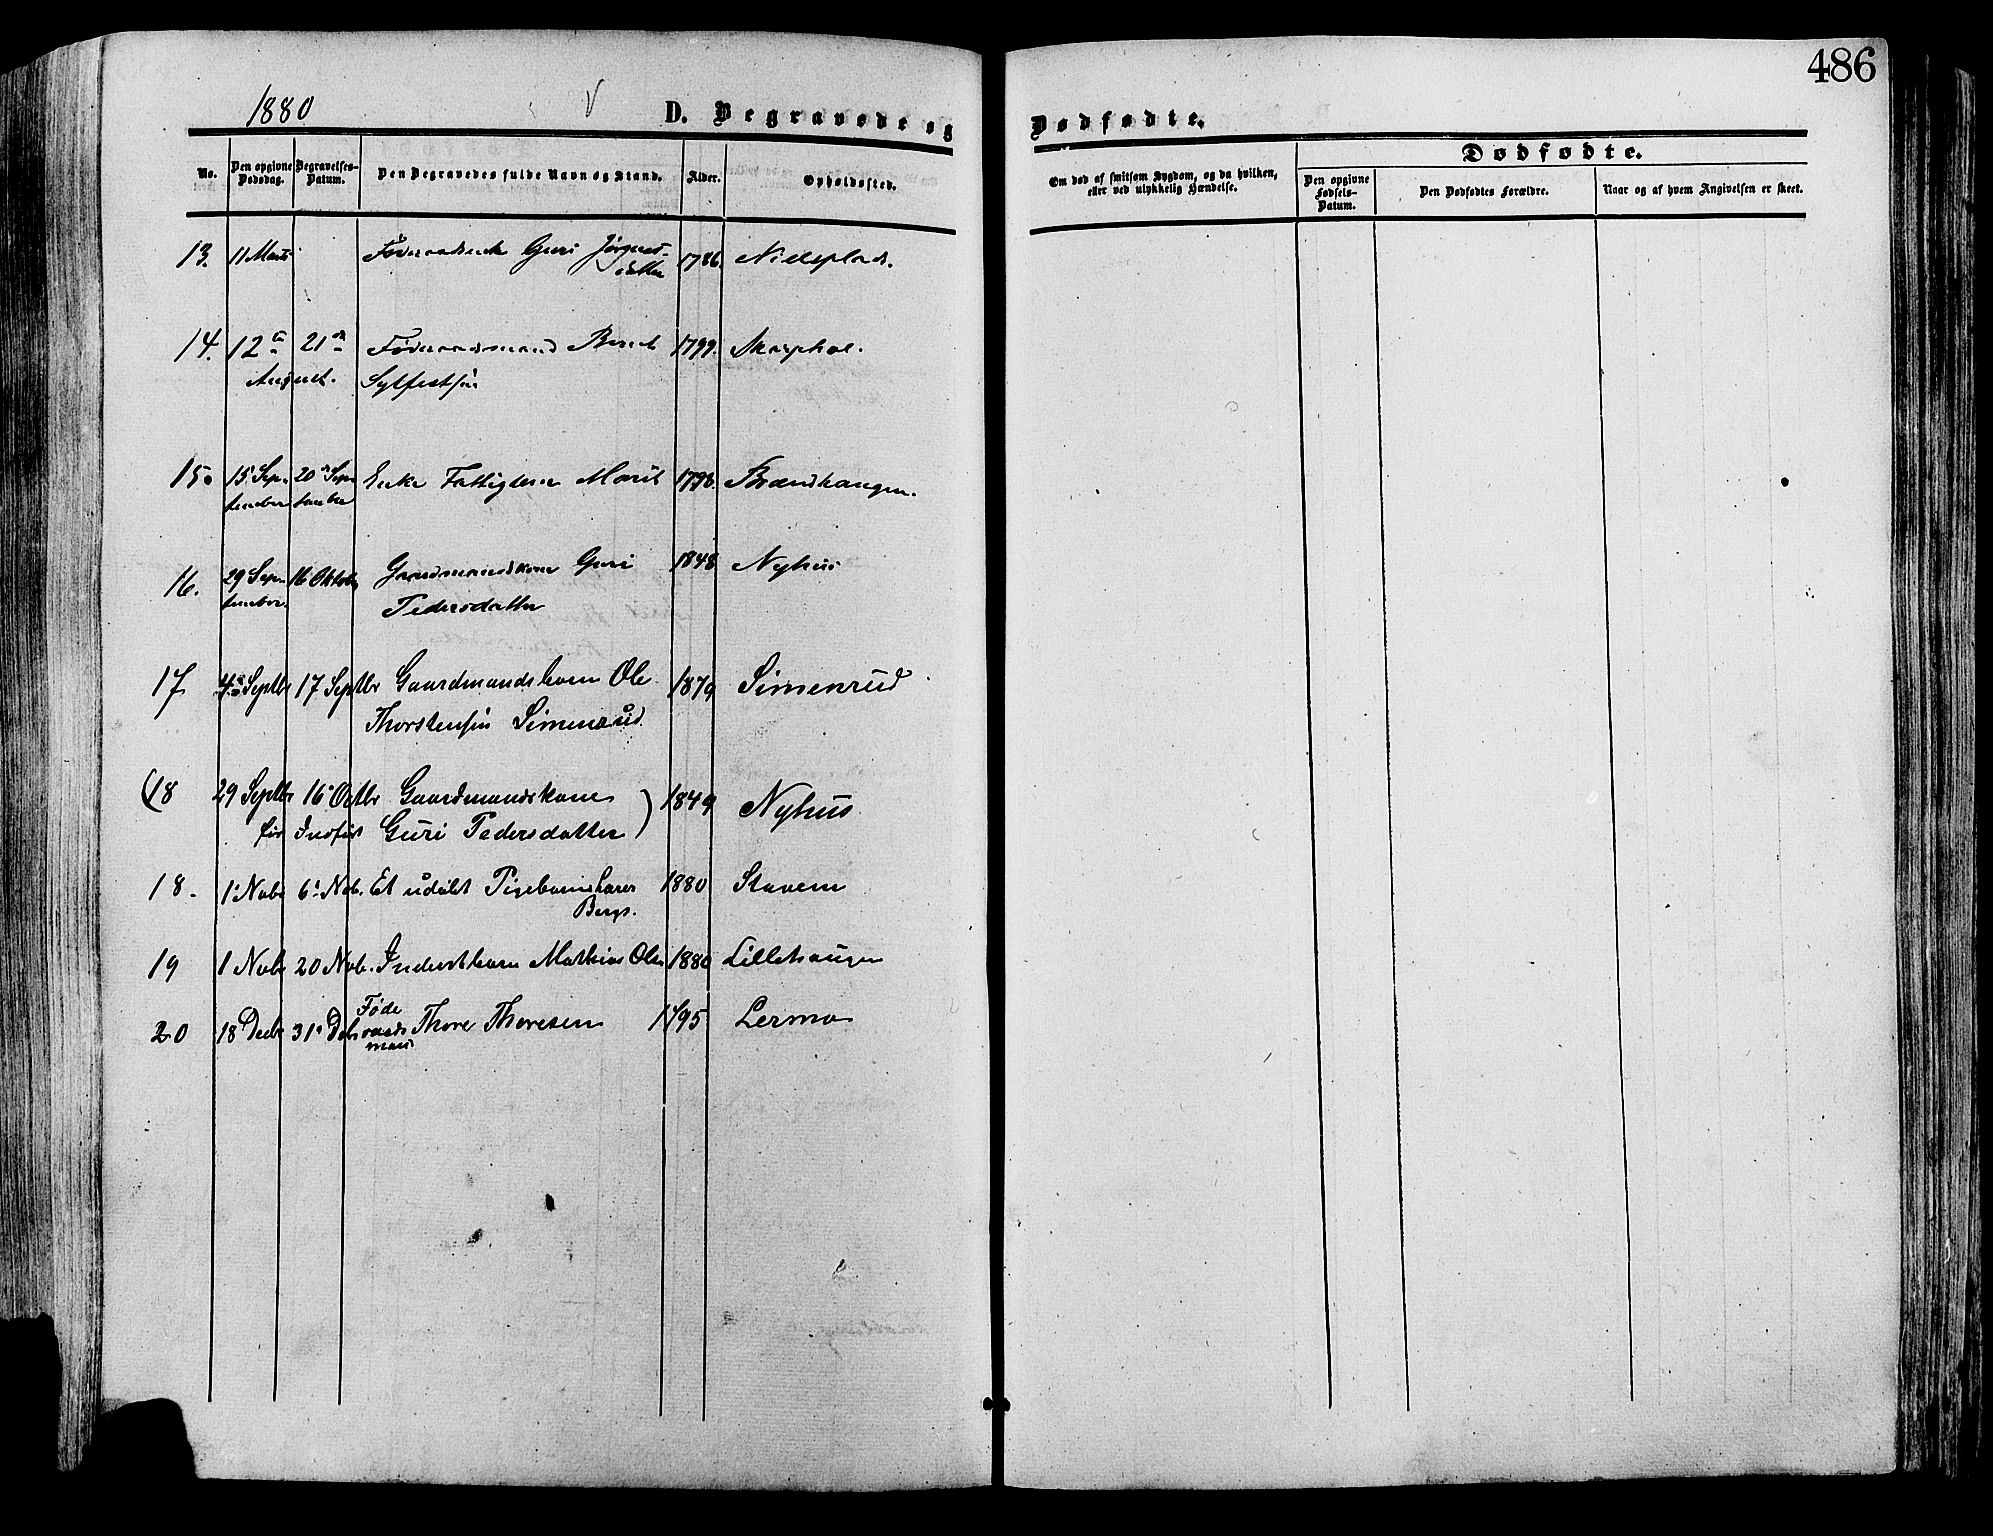 1880
D. Begravede og
Dødfødte.
486
No.
Den opgivne Dødsdag.
Begravelses-Datum.
Den Begravedes fulde Navn og Stand.
Alder.
Opholdssted.
Om død af smitsom Sygdom, og da hvilken, eller ved ulykkelig Hændelse.
Dødfødte.
Den opgivne Fødsels-Datum.
Den Dødfødtes Forældre.
Naar og af hvem Angivelsen er skeet.
13. 11 Marts Guri Jørgens- 1786.
datter
14. 12te 21de Føderaadsmand Bent 1799.
August. Sylfestsøn
15. 15 Sep- 20 Sep- Enke Marit 1798.
tember tember
16. 29 Sep- 16 Oktober Gaardmandskone Guri 1848 Nyhus
tember Pedersdatter
17 4 Septbr 17 Septbr Gaardmandsbarn Ole 1879 Simenrud
Thorstensøn Simenrud
(18 29 Septbr 16 Octbr Gaardmandskone 1849 Nyhus
før Indført Guri Pedersdatter )
18. 1 Nobr 6 Nob. Et udøbt Pigebarn 1880 Stavem
19 1 Nobr 20 Nob. Inderstbarn Mathias Olsen 1880 Lillehaugen
20 18 Decbr 31 Føderaadsmand Thore Thoresen 1795 Lermo